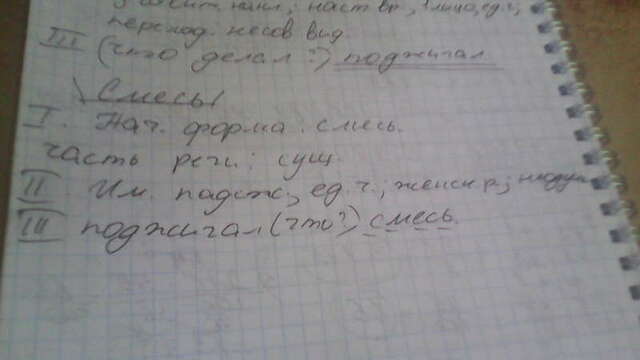 наст вр., 1 лицо, ед. ч.,
переход. несов вид.
III (что делал?) поджигал
\ Смесь /
I. Нач. форма. смесь.
часть речи: сущ.
II. Им. падеж; ед. ч.; женск р.; неодуш
III поджигал (что?) смесь.